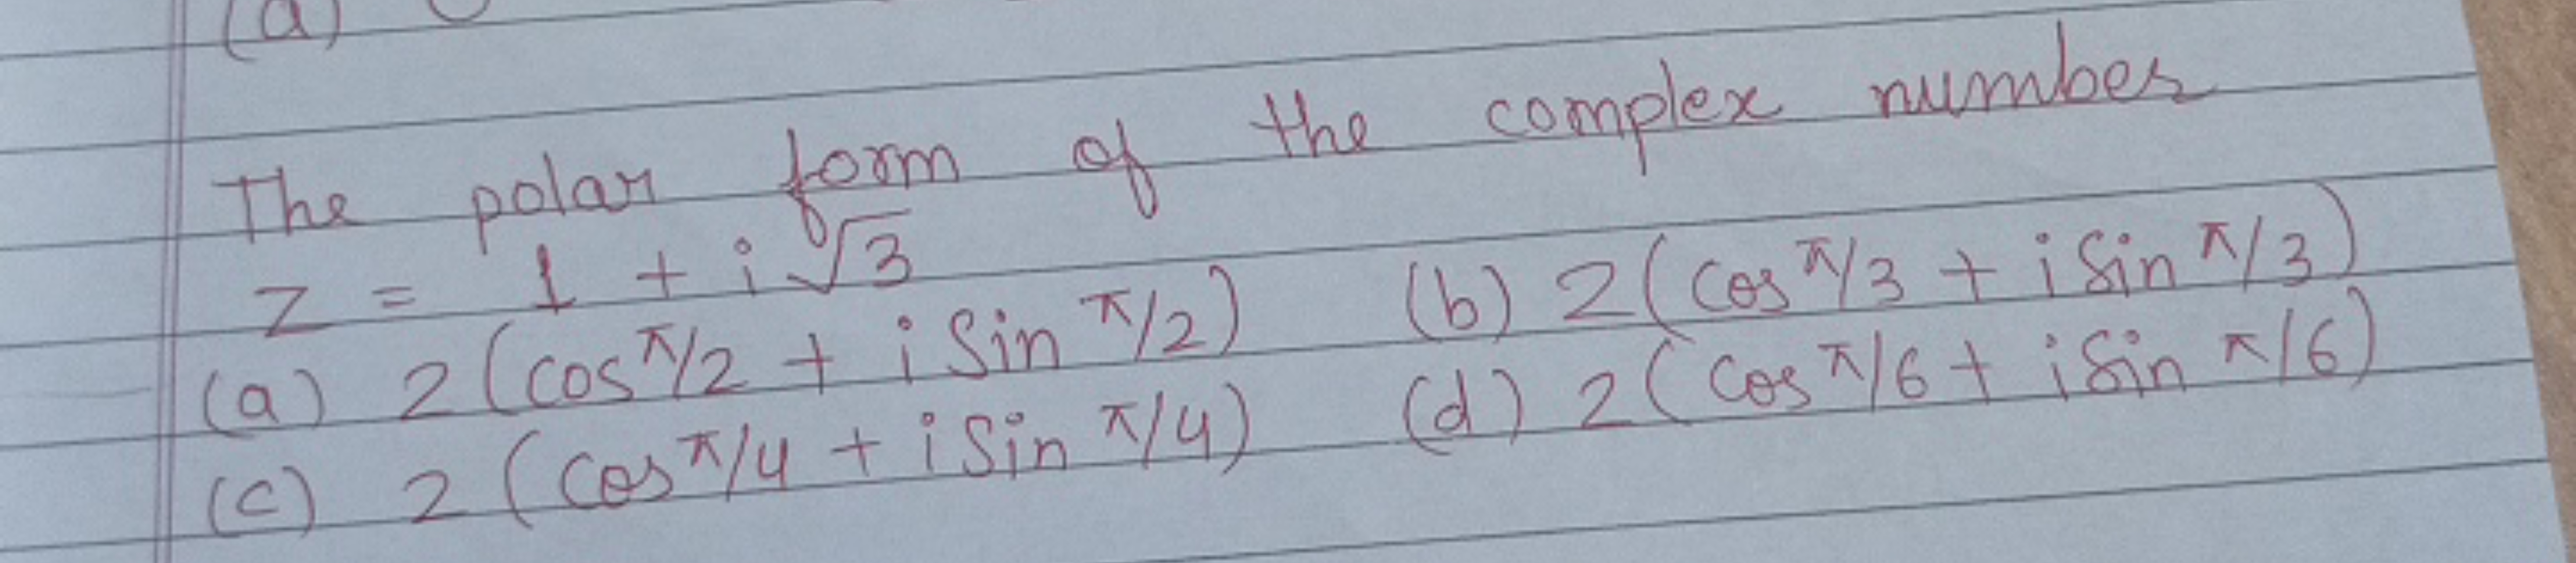 (a)
The polar form of the complex number
z = 1 + i√3
(a) 2(cos π/2 + i Sin π/2) (b) 2(Cos π/3 + i Sin π/3)
(c) 2 (Cos π/4 + i Sin π/4) (d) 2(Cos π/6 + i Sin π/6)